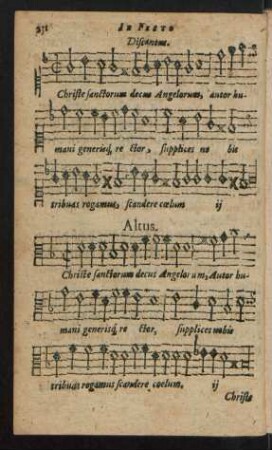 In Festo
Discantus.
Christe sanctorum decus Angelorum, autor hu-
mani generisq; re ctor, supplices no bis
tribuas rogamus, scandere cœlum ij
Altus.
Christe sanctorum decus Angelorum, Autor hu-
mani generisq; re ctor, supplices nobis
tribuas rogamus scandere coelum. ij
Christe